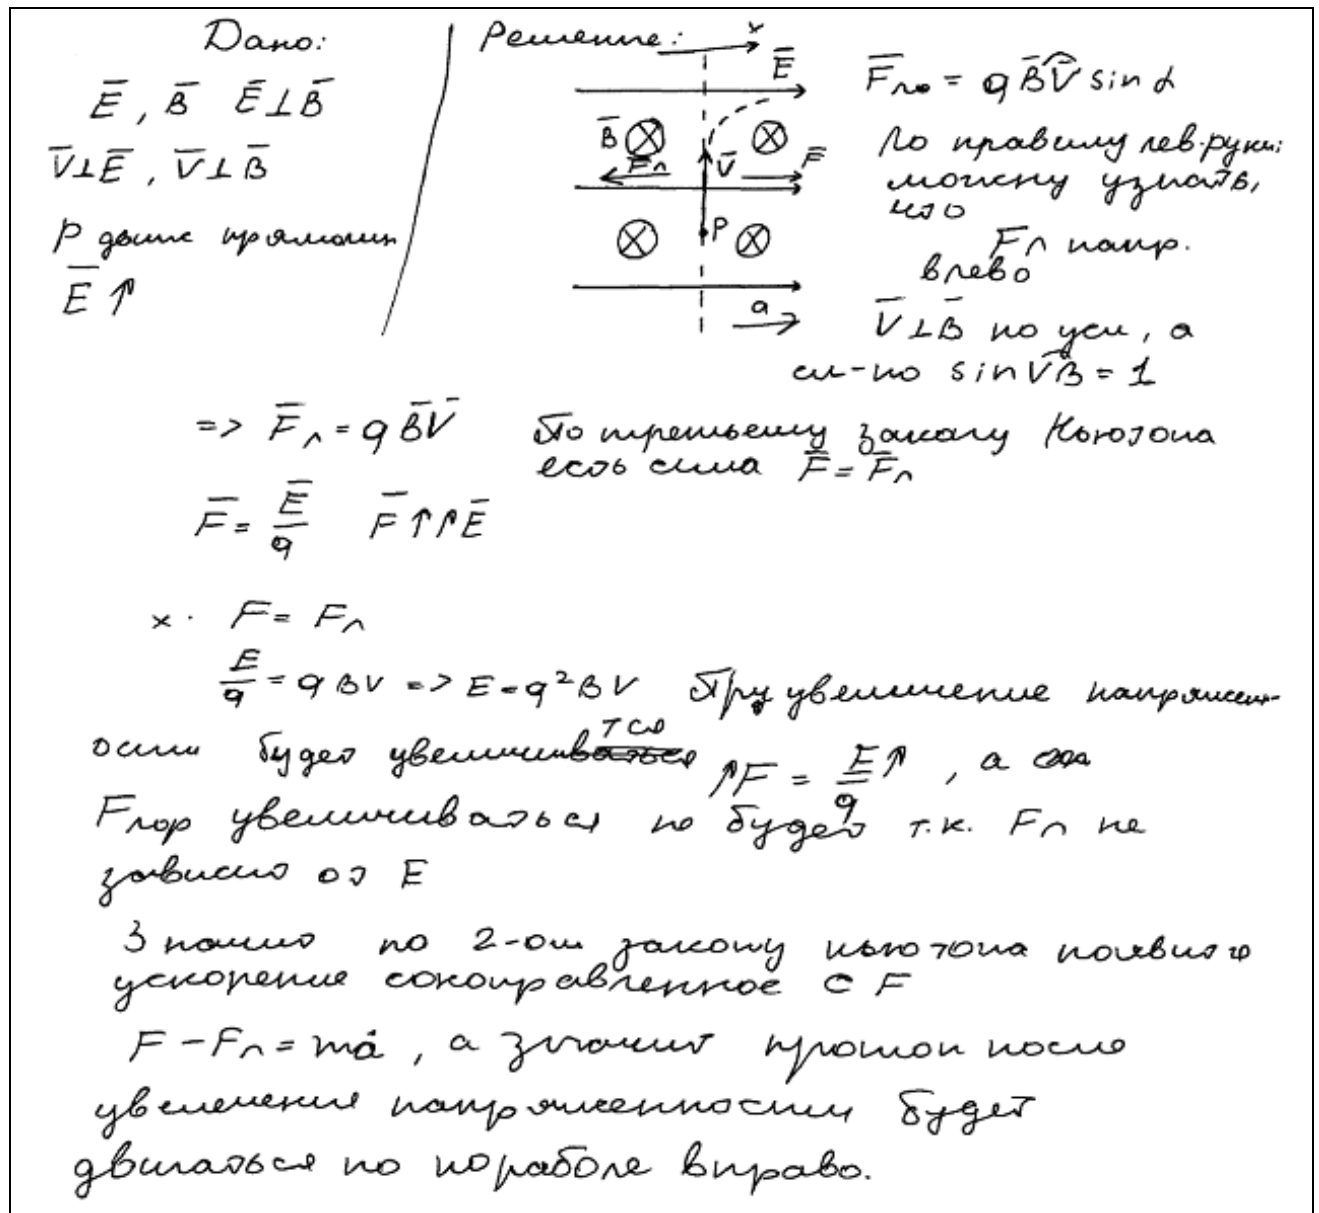 Дано:
E̅, B̅ E̅⊥B̅
V̅⊥E̅, V̅⊥B̅
P движ прямолин
E̅ ↑
Решение:
x
E̅
B̅ ⊗ ⊗
F̅л V̅ F̅
⊗ P ⊗
a
F̅ло = q B̅V̅ sin α
По правилу лев.руки:
можну узнать,
что
Fл напр.
влево
V̅⊥B̅ по усл, а
сл-но sin V̅B̅ = 1
=> F̅л = q B̅V̅ По третьему закону Ньютона
есть сила F̅ = F̅л
F̅ = E̅/q F̅ ↑↑ E̅
x. F = Fл
E/q = q B V => E = q² B V При увеличение напряжен-
ости будет увеличиваться ↑F = E↑/q, а
Fлор увеличиваться не будет т.к. Fл не
зависит от E
Значит по 2-ом закону ньютона появится
ускорение сонаправленное с F
F - Fл = ma̅, а значит протон после
увелечения напряженности будет
двигаться по пораболе вправо.